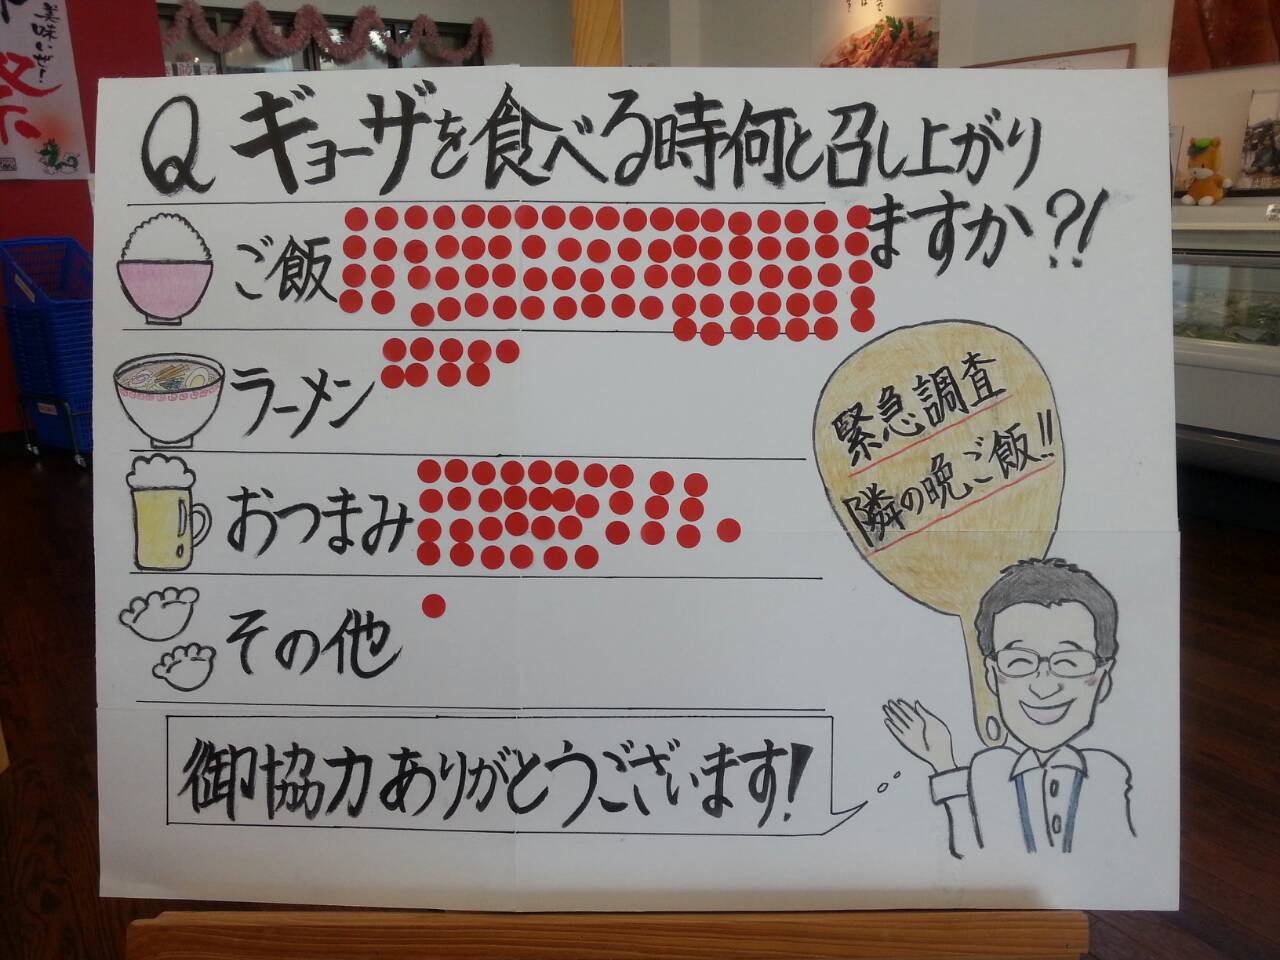 美味いぜ!
祭
Q ギョーザを食べる時何と召し上がり
ますか?!
ご飯
ラーメン
おつまみ
その他
緊急調査
隣の晩ご飯!!
御協力ありがとうございます!